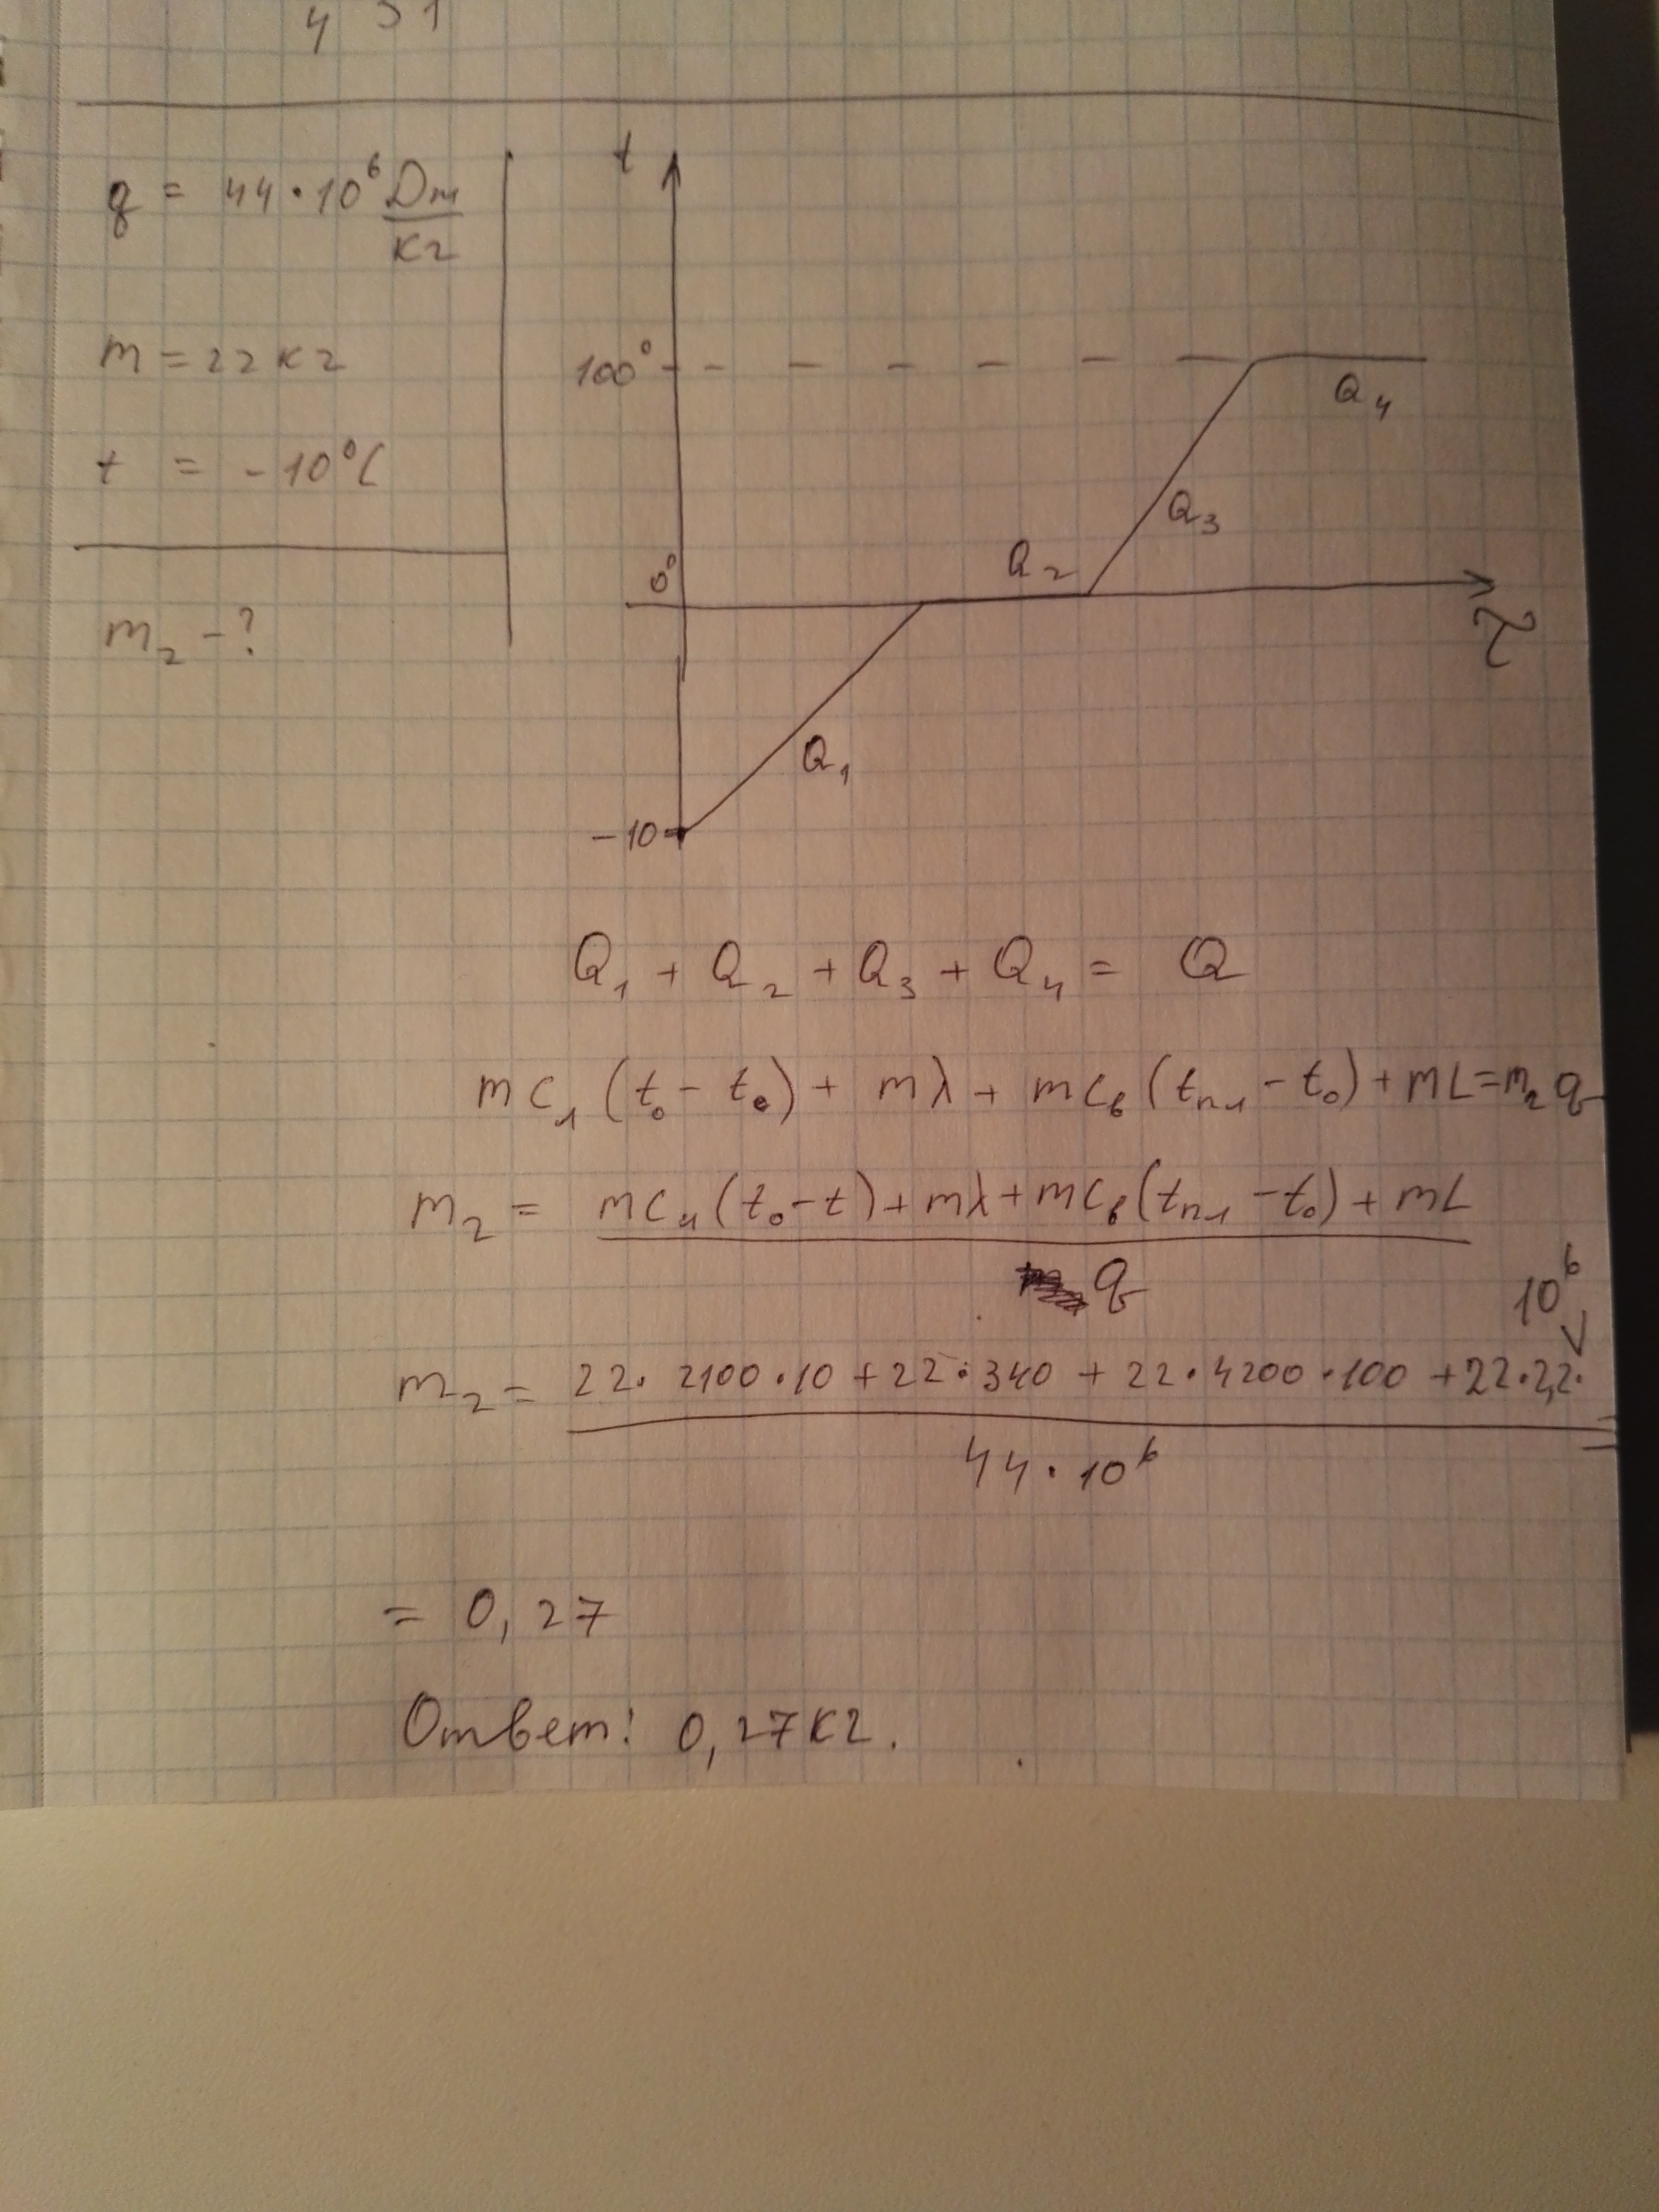 4 31
q = 44·10⁶ Дж/кг
m = 22 кг
t = -10°C
m₂ - ?
t
100°
Q₄
Q₃
0°
Q₂
τ
Q₁
-10
Q₁ + Q₂ + Q₃ + Q₄ = Q
mc₁(t₀ - t₀) + mλ + mcв(tпл - t₀) + mL = m₂q
m₂ = (mcл(t₀ - t) + mλ + mcв(tпл - t₀) + mL) / q
m₂ = (22·2100·10 + 22·340 + 22·4200·100 + 22·2,2·10⁶) / (44·10⁶) =
= 0,27
Ответ: 0,27 кг.